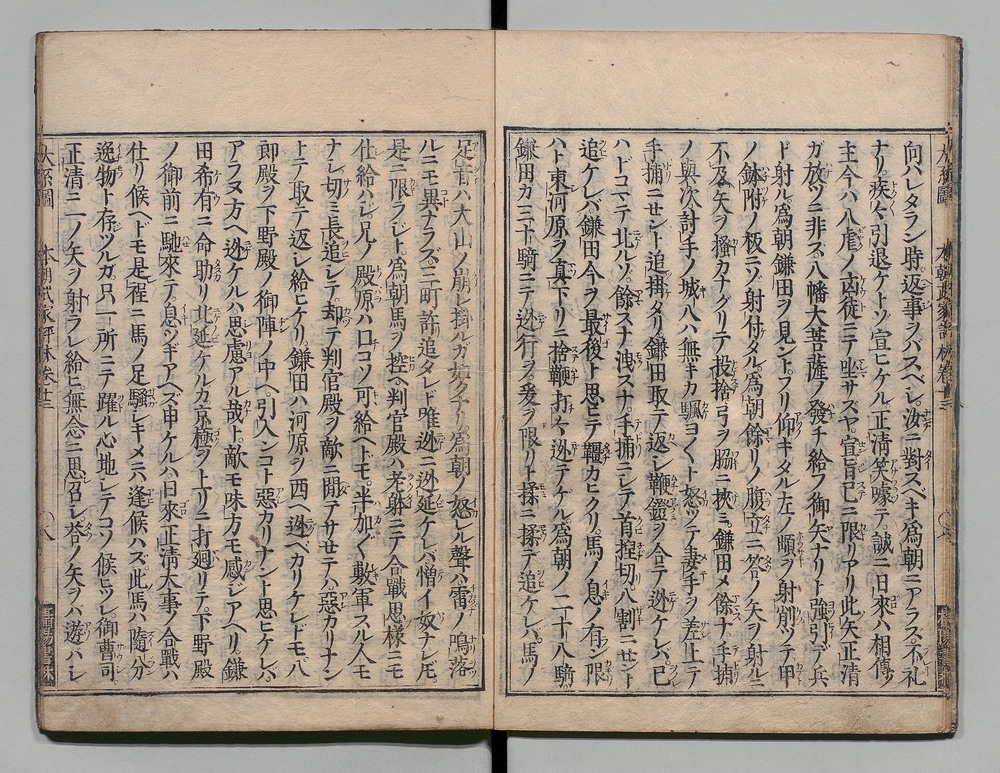 向ハレタラン時返事ヲバスベシ。汝ニ對スベキ爲朝ニアラス不礼
ナリ。疾々引退ケトソ宣ヒケル正清笑嚎テ。誠ニ日來ハ相傳ノ
主今ハ八虐ノ凶徒ニテ坐サスヤ。宣旨已ニ限リアリ此矢正清
ガ放ツニ非ス八幡大菩薩ノ發チ給フ御矢ナリト強引テ兵
ド射ル爲朝鎌田ヲ見ントフリ仰キタル左ノ頬ヲ射削ツテ甲
ノ鉢附ノ板ニゾ射付タル。爲朝餘リノ腹立ニ答ノ矢ヲ射ルニ
不及矢ヲ掻カナグリテ投捨弓ヲ脇ニ挾ミ。鎌田メ餘スナ手捕
ノ與次討手ノ城八ハ無キカ颿ヨ〱ト怒ツテ妻手ヲ差上テ
手捕ニセント追掛タリ鎌田取テ返シ鞭鐙ヲ合テ迯ケレバ。已
ハドコマテ北ルソ。餘スナ洩スナ。手捕ニシテ首捏切八割ニセント
追ケレバ鎌田今ヲ最後ト思ヒテ韁カヒクリ馬ノ息ノ有ン限
ハト東河原ヲ真下リニ捨鞭打ケ迯テケル爲朝ノ二十八騎
鎌田カ三十騎ニテ迯行ヲ爰ヲ限リト揉ニ揉テ追ケレバ。馬ノ
足音ハ大山ノ崩レ掛ルガ如クナリ。爲朝ノ怒レル聲ハ雷ノ鳴落
ルニモ異ナラズ。三町許追タレド唯迯ニ迯延ケレバ憎イ奴ナレ𪜈。
是ニ限ラジト。爲朝馬ヲ控ヘ判官殿ハ老躰ニテ合戰思樣ニモ
仕給ハシ。兄ノ殿原ハ口コソ可給ヘトモ。半加〱敷軍スル人モ
ナシ。切ニ長追シテ。却テ判官殿ヲ敵ニ開テサセテハ惡カリナン
トテ取テ返シ給ヒケリ。鎌田ハ河原ヲ西ヘ迯ベカリケレドモ八
郎殿ヲ下野殿ノ御陣ノ中ヘ。引入ンコト惡カリナント思ヒケレバ
アラヌ方ヘ迯ケルハ思慮アル哉ト。敵モ味方モ感ジアヘリ。鎌
田希有ニ命助リ北延ケルカ京極ヲ上リニ打廻リテ。下野殿
ノ御前ニ馳來テ。息ツギアヘズ申ケルハ日來正清大事ノ合戰ハ
仕リ候ヘドモ是程ニ馬ノ足騷シキメニハ逢候ハズ。此馬ハ隨分
逸物ト存ツルガ。只一所ニテ躍ル心地シテコソ候ヒツレ御曹司
正清ニ一ノ矢ヲ射ラレ給ヒ。無念ニ思召シ答ノ矢ヲハ遊ハシ
大系圖 本朝武家評林卷廿三 八